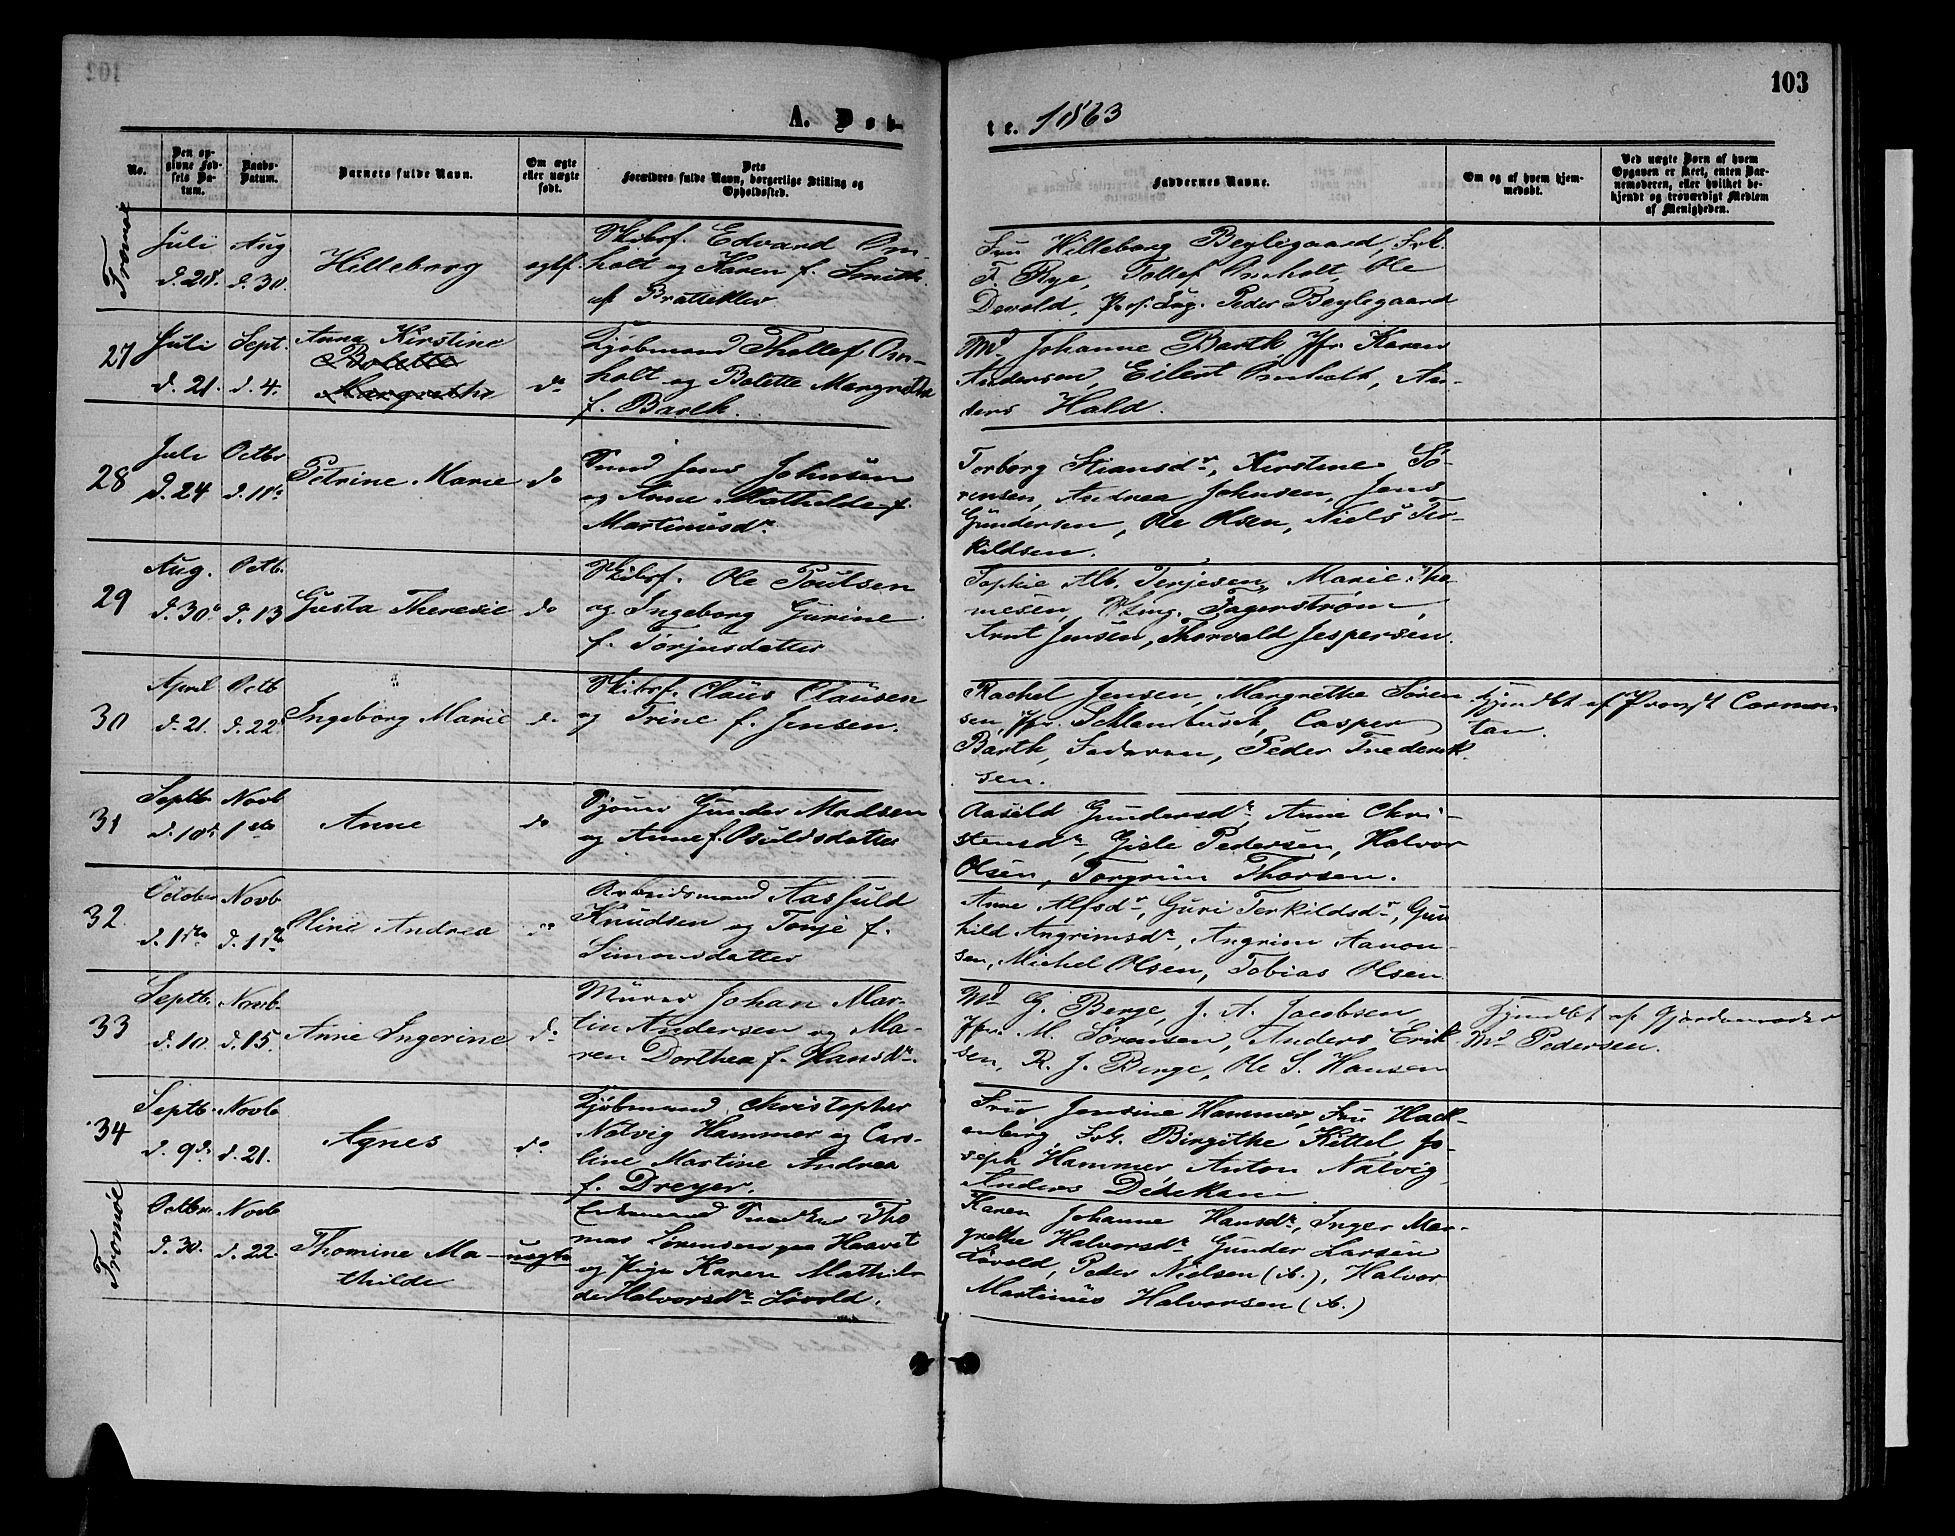 103
A. Døb-
te. 1863
No.
Den op-
givne Fød-
sels Da-
tum.
Daabs-
Datum.
Barnets fulde Navn.
Om ægte
eller uægte
født.
Dets
Forældres fulde Navn, borgerlige Stilling og
Opholdssted.
Faddernes Navne.
Om og af hvem hjem-
medøbt.
Ved uægte Børn af hvem
Opgaven er skeet, enten Bar-
nemoderen, eller hvilket be-
kjendt og troværdigt Medlem
af Menigheden.
Tromøe
Juli
d. 28.
Aug
d. 30.
Hilleborg
Skibsf. Edvard Om-
holt og Karen f. Smith
af Bratteklev
Fru Hilleborg Beylegaard, Frk.
F. Rye, Tollef Omholt, Ole
Devold, Peder Beylegaard
27
Juli
d. 21.
Sept.
d. 4.
Anne Kirstine
Bolette
Margrethe
do
Kjøbmand Thollef Om-
holt og Bolette Margrethe
f. Barth.
Md Johanne Barth, Jfr. Karen
Andersen, Eilert Omholt, An-
ders Hald.
28
Juli
d. 24
Octbr
d. 11te
Petrine Marie
do
Tmd Jens Johnsen
og Anne Mathilde f.
Martinusdr.
Torborg Stiansdr, Kirstene Sö-
rensen, Andrea Johnsen, Jens
Gundersen, Ole Olsen, Niels Ter-
kildsen.
29
Aug.
d. 30.
Octb.
d. 13
Gusta Theresie
do
Skibsf. Ole Poulsen
og Ingeborg Gurine
f. Torjusdatter
Sophie Alb. Terjesen, Marie The-
mesen, Fagerstrøm,
Arnt Jensen, Thorvald Jespersen.
30
April
d. 21.
Octb
d. 22
Ingeborg Marie
do
Skibsf. Claus Clausen
og Trine f. Jensen.
Rachel Jensen, Margrethe Sören
sen, Jfr. Schlambusch, Casper
Barth, Faderen, Peder Frederik-
sen.
Kjendt af Provst Carmen
tan.
31
Septb.
d. 10d
Novb
1ste
Anne
do
Gunder Madsen
og Anne f. Osuldsdatter
Aasild Gundersdr, Anne Chri-
stensdr, Gisle Pedersen, Halvor
Olsen, Torgrim Thorsen.
32
October
d. 1ste
Novb
d. 1ste
Oline Andrea
do
Arbeidsmand Aasuld
Knudsen og Tonje f.
Simonsdatter
Anne Alfsdr, Guri Terkildsdr, Gun
hild Angrimsdr, Angrim Aanon-
sen, Michel Olsen, Tobias Olsen
33
Septb.
d. 10.
Novb.
d. 15.
Anne Ingerine
do
Murer Johan Mar-
tin Andersen og Ma-
ren Dorthea f. Hansdr.
Md G. Berge, J. A. Jacobsen
Jfr. M. Sörensen, Anders Erik
sen, R. J. Berge, Ole S. Hansen
af Gjordemoder
Md Pedersen.
34
Septb.
d. 9de
Novb
d. 21.
Agnes
do
Kjöbmand Christopher
Natvig Hammer og Caro-
line Martine Andrea
f. Dreyer.
Frue Jensine Hammer, Fru Hack-
enberg, Frk. Birgithe Kittel, Jo-
seph Hammer, Anton Natvig
Anders Dedekam
Tromøe
Octbr.
d. 30.
Novb
d. 22
Thomine Ma-
thilde
uegte
Enkemand Tho
mas Sørensen paa Haavet
og Pige Karen Mathil-
de Halvorsdr Løvold.
Karen Johanne Hansdr, Inger Mar-
grethe Halvorsdr Gunder Larsen
Løvold, Peder Nielsen (A.), Halvor
Martinus Halvorsen (A.)